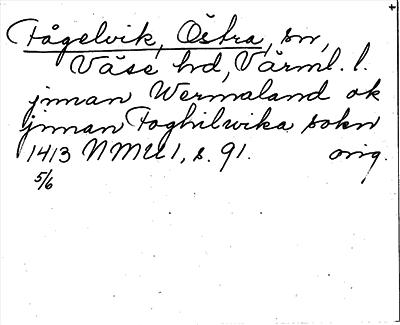 Fågelvik, Östra, sn,
Väse hd, Värml. l.
jnnan Wermaland ok
jnnan Foghilwika sokn
1413 NMU 1, s. 91. orig.
5/6